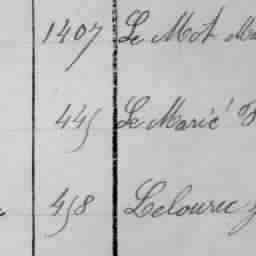 1407 Le Mot
445 Le Marié
458 Lelourec